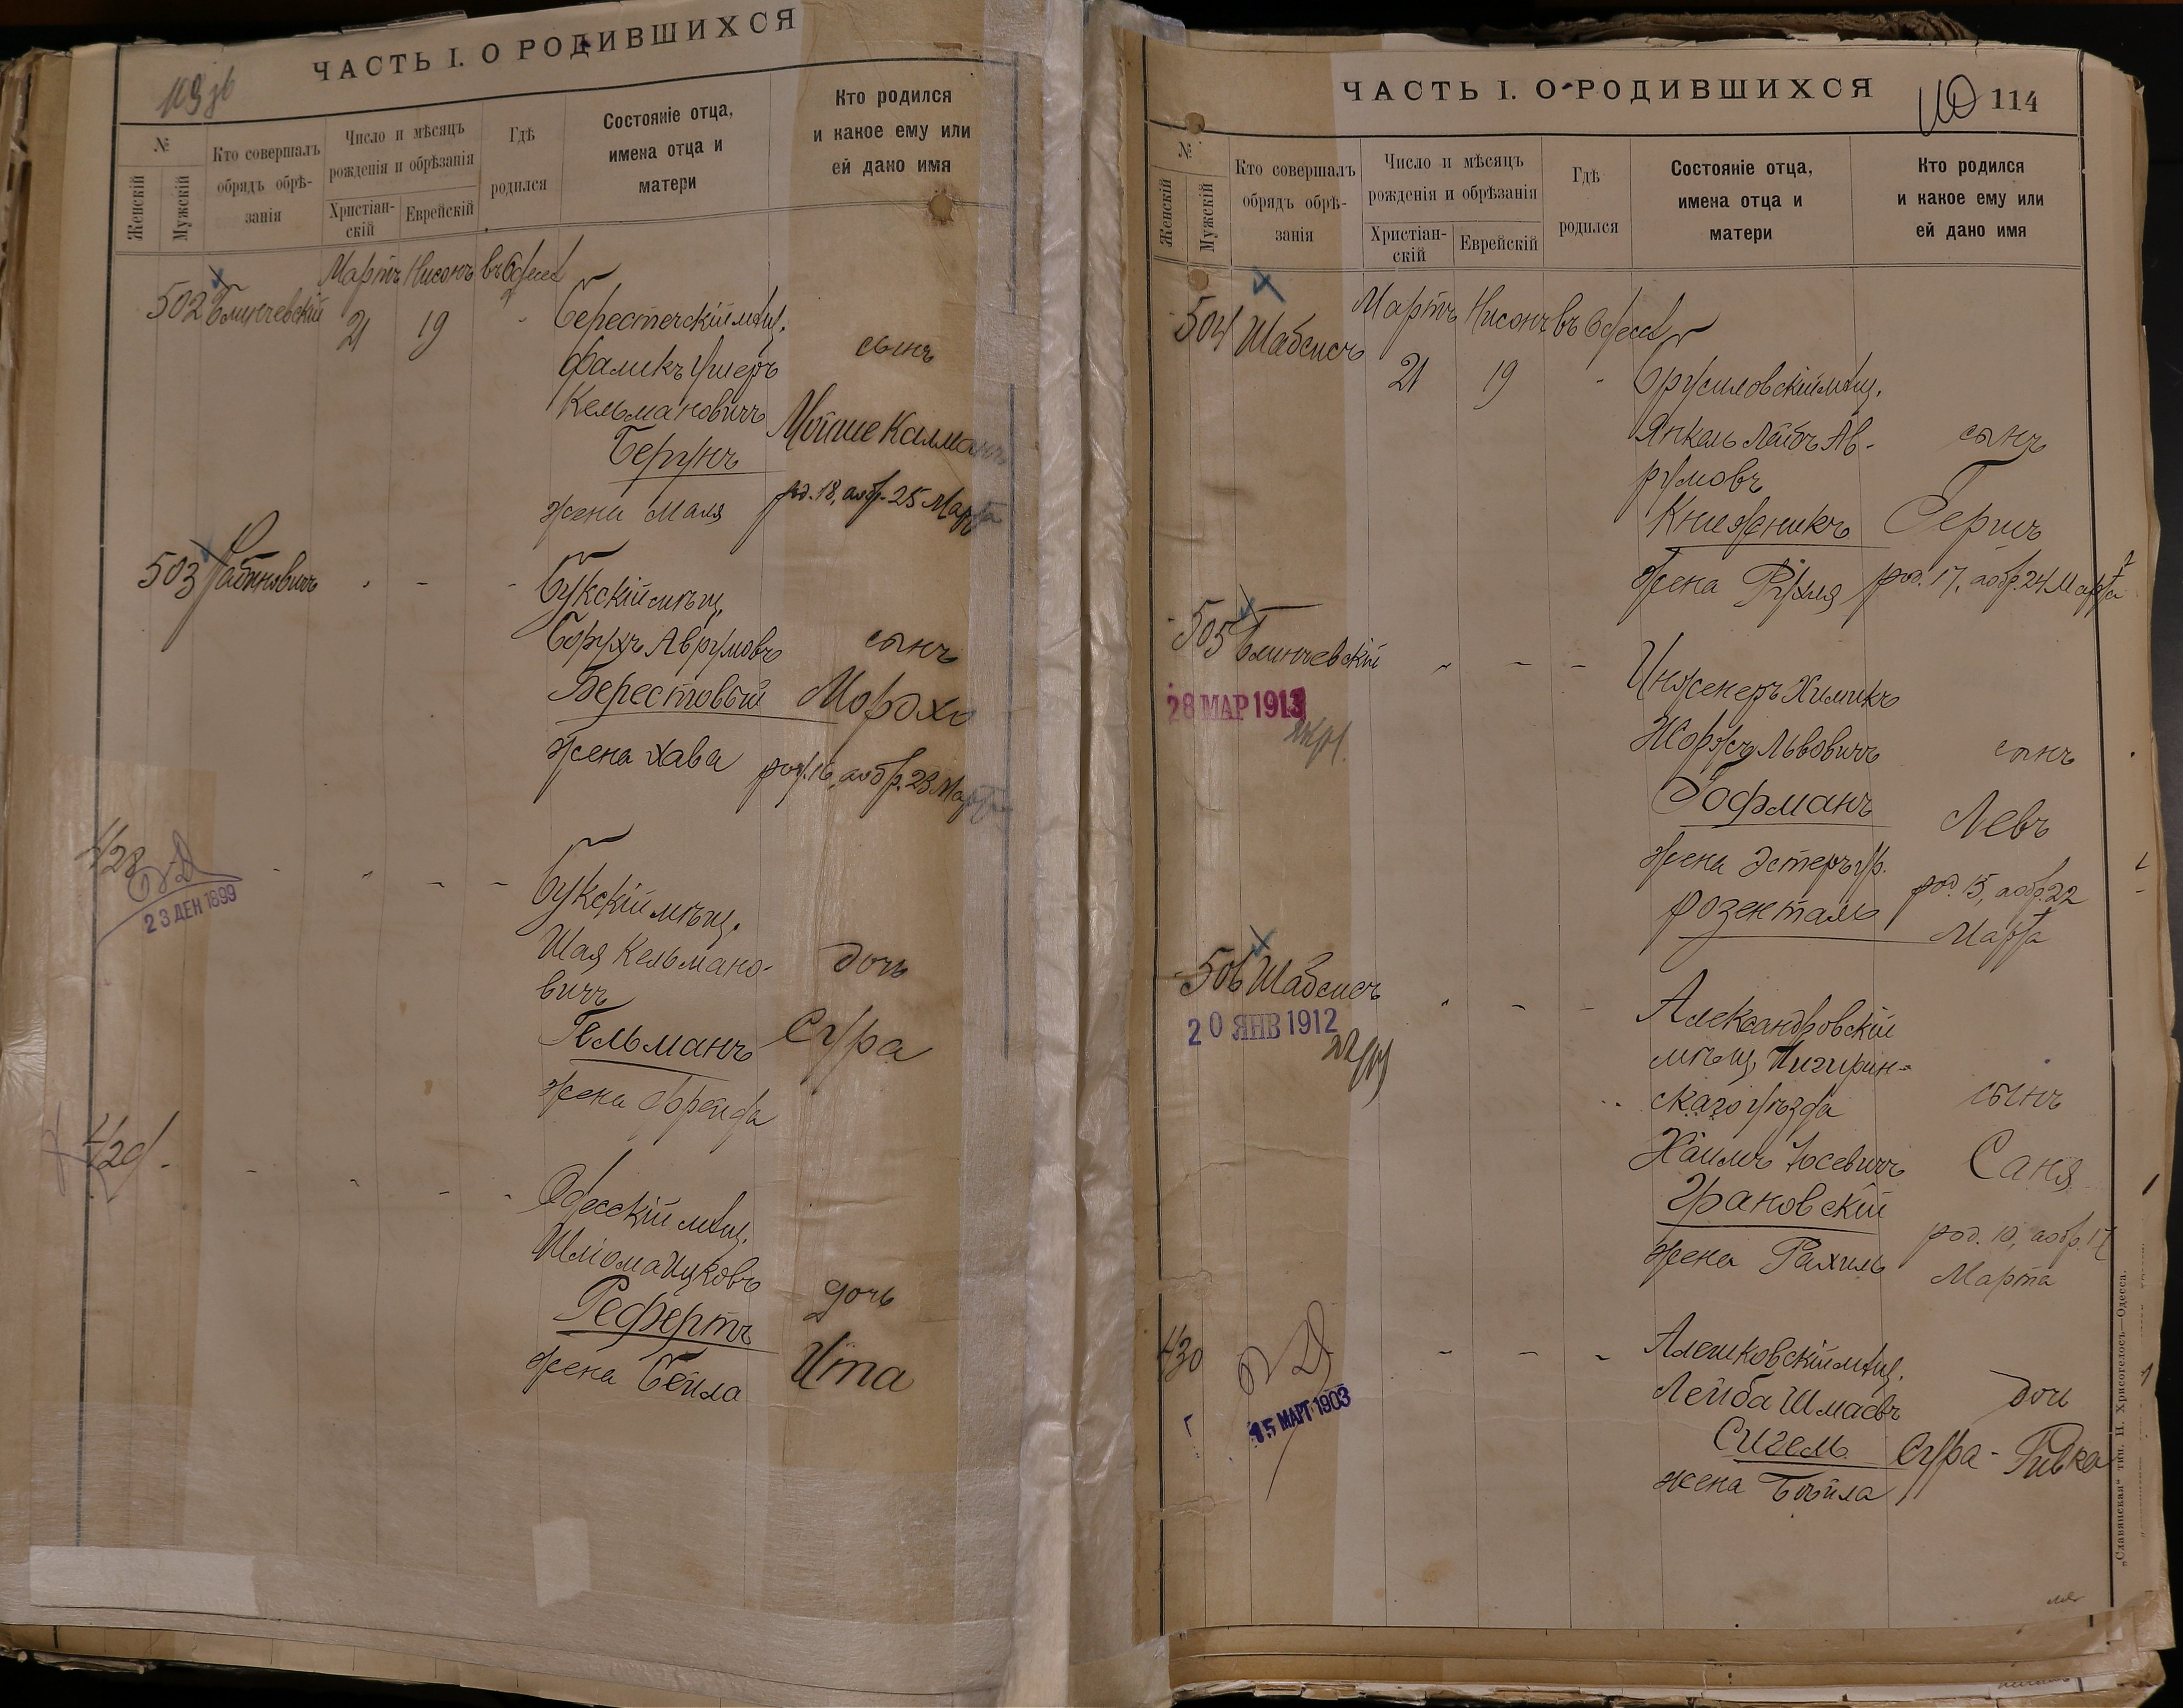 ЧАСТЬ I. О РОДИВШИХСЯ
№
Женскій
Мужскій
Кто совершалъ
обрядъ обрѣ-
занія
Число и мѣсяцъ
рожденія и обрѣзанія
Христіан-
скій
Еврейскій
Гдѣ
родился
Состояніе отца,
имена отца и
матери
Кто родился
и какое ему или
ей дано имя
Мартъ Нисонъ въ Одессѣ
502 Блинчевскій 21 19
Берестечскій мѣщ.
Фаликъ Ушеръ
Кельмановичъ
Бегунъ
жена Маля
сынъ
Мойше Калманъ
род. 18, а обр. 25 Марта
503 Рабиновичъ
Букскій мѣщ.
Борухъ Аврумовъ
Берестовый
жена Хава
сынъ
Мордко
род. 16, а обр. 23 Марта
428
23 ДЕН 1899
Букскій мѣщ.
Шая Кельмано-
вичъ
Гельманъ
жена Фрейда
дочь
Сура
429
Одесскій мѣщ.
Шліома Ицковъ
Рефертъ
жена Бейла
дочь
Ита
ЧАСТЬ I. О РОДИВШИХСЯ
110 114
№
Женскій
Мужскій
Кто совершалъ
обрядъ обрѣ-
занія
Число и мѣсяцъ
рожденія и обрѣзанія
Христіан-
скій
Еврейскій
Гдѣ
родился
Состояніе отца,
имена отца и
матери
Кто родился
и какое ему или
ей дано имя
Мартъ Нисонъ въ Одессѣ
504 Шабсисъ 21 19
Брусиловскій мѣщ.
Янкель Лейбъ Ав-
румовъ
Книжникъ
жена Рухля
сынъ
Гершъ
род. 17, а обр. 24 Марта
505 Блинчевскій
28 МАР 1913
Инженеръ Химикъ
Жоржъ Львовичъ
Гофманъ
жена Эстеръ ур.
Розенталь
сынъ
Левъ
род. 15, а обр. 22
Марта
506 Шабсисъ
20 ЯНВ 1912
Александровскій
мѣщ. Чигирин-
скаго уѣзда
Хаимъ Іосевичъ
Грановскій
жена Рахиль
сынъ
Саня
род. 10, а обр. 17
Марта
430
15 МАРТ 1903
Алешковскій мѣщ.
Лейба Шмаевъ
Сигель
жена Бейла
дочь
Сура-Ривка
„Славянская“ тип. Н. Хрисогелосъ—Одесса.